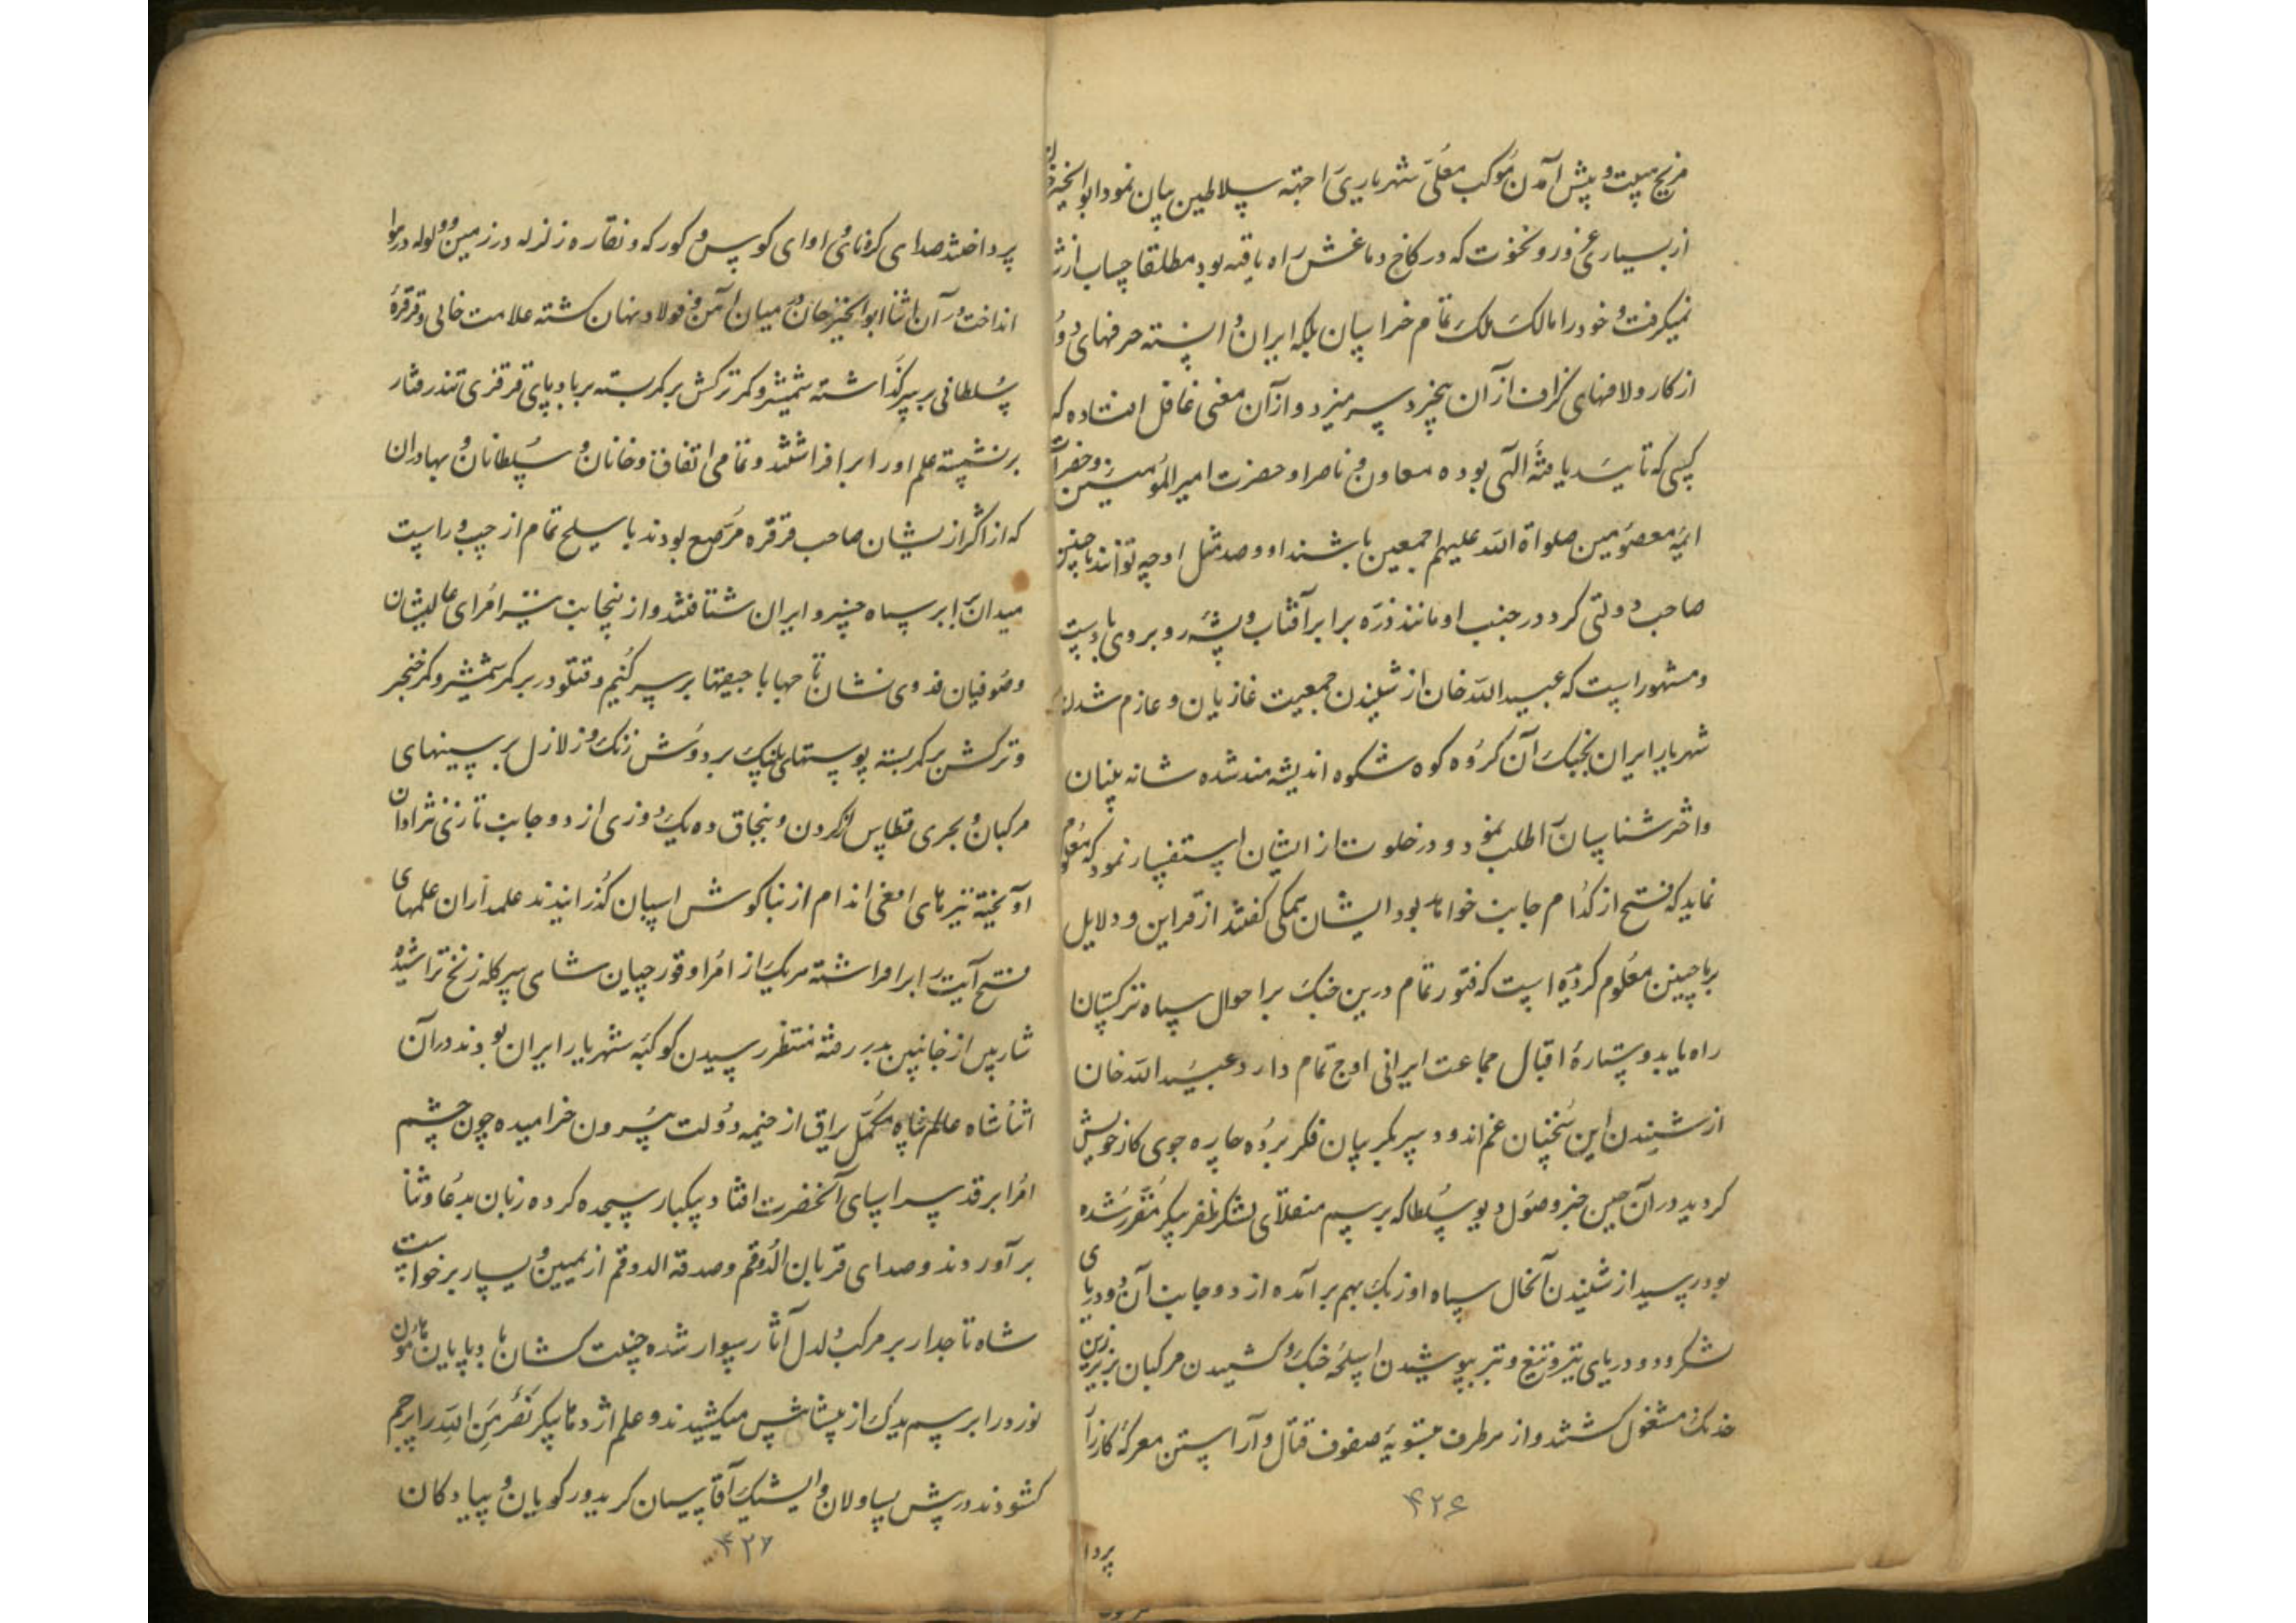 و پیش آمدن موکب معلی شهریاری را جهته سلاطین بیان نمود ابوالخیر خان
از بسیاری غرور و نخوت که در کاخ دماغش راه یافته بود مطلقا حساب از
نمیکرفت و خود را مالک ملک تمام خراسان بلکه ایران دانسته حرفهای دور
از کار و لافهای کزاف از آن بیخرد سر میزد و از آن معنی غافل افتاده که
کسی که تایید یافتهٔ الهی بوده معاون و ناصر او حضرت امیر المؤمنین و حضرات
ائمه معصومین صلواة الله علیهم اجمعین باشند او و صد مثل او چه توانند با چنین
صاحب دولتی کرد در جنب او مانند ذره برابر آفتاب و پشه روبروی باد است
و مشهور است که عبید الله خان از شنیدن جمعیت غازیان و عازم شدن
شهریار ایران بجنک آن کروه کوه شکوه اندیشه مند شده شانه بینان
و اختر شناسان را طلب نمود و در خلوت از ایشان استفسار نمود که معلوم
نماید که فتح از کدام جانب خواهد بود ایشان همکی کفتند از قراین و دلایل
بر ما چنین معلوم کردیده است که فتور تمام درین جنک بر احوال سپاه ترکستان
راه یابد و ستارهٔ اقبال جماعت ایرانی اوج تمام دارد عبید الله خان
از شنیدن این سخنان غم اندود سر بکریبان فکر برده چاره جوی کار خویش
کردید در آن حین خبر وصول دیو سلطان که برسم منقلای لشکر ظفر پیکر مقرر شده
بود رسید از شنیدن آنحال سپاه اوزبک بهم برآمده از دو جانب آن دو دریای
لشکر و دو دریای تیر و تیغ و تبر بپوشیدن اسلحهٔ جنک و کشیدن مرکبان بزیر زین
خدنک مشغول کشتند و از هر طرف بتسویهٔ صفوف قتال و آراستن معرکهٔ کارزار
۴۲۶
پردا
پرداختند صدای کرهنای و اوای کوس و کورکه و نقاره زلزله در زمین و ولوله در هوا
انداخت در آن اثنا ابوالخیر خان در میان آهن و فولاد پنهان کشته علامت خانی و قرقرهٔ
سلطانی بر سر کذاشته شمشیر و کمر ترکش بر کمر بسته بر بادپای قرقزی تندرفتار
برنشسته علم او را برافراشتند و تمامی اتفاق و خانان و سلطانان و بهادران
که از اکثر ازیشان صاحب قرقره مرصع بودند با سلح تمام از چپ و راست
میدان برابر سپاه خسرو ایران شتافتند و از ینجانب نیز امرای عالیشان
و صوفیان فدوی نشان تاجها با جیغها بر سر کنیم و قتلو در بر کمر شمشیر و کمر خنجر
و ترکش بر کمر بسته پوستهای پلنک بر دوش زنک و زلازل بر سینهای
مرکبان و بحری قطاس از کردن و بنجاق ده یک دوزی از دو جانب تازی نژادان
اویخته نیزهای افعی اندام از بناکوش اسبان کذرانیدند علمداران علمهای
فتح آیت را برافراشته هر یک از امرا و قورچیان شاهی سر کله زنخ تراشیده
شارب از جانبین بدر رفته منتظر رسیدن کوکبه شهریار ایران بودند در آن
اثنا شاه عالم پناه مکمل یراق از خیمه دولت بیرون خرامیده چون چشم
امرا بر قد سراپای آنحضرت افتاد یکبار سجده کرده زبان بدعا و ثنا
برآوردند و صدای قربان الدوقم و صدقه الدوقم از یمین و یسار برخواست
شاه تاجدار بر مرکب دلدل آثار سوار شده جنیبت کشان بادپایان هامون
نورد را برسم یدک از پیشاپیش میکشیدند و علم اژدها پیکر نصر من الله را پرچم
کشودند در پیش یساولان و ایشیک آقاسیان کریدور کویان و پیادکان
۴۲۷